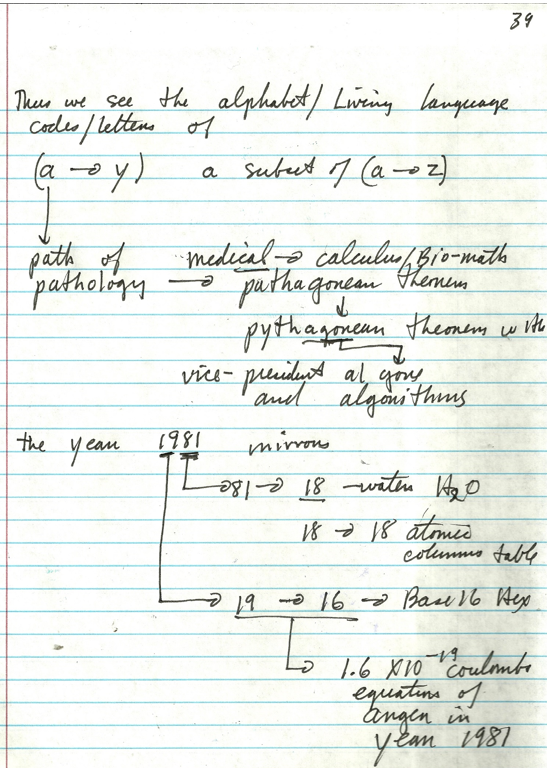 39
Thus we see the alphabet/Living language
codes/letters of
(a → y) a subset of (a → z)
path of medical → calculus/Bio-math
pathology → pathagorean theorem
pythagorean theorem with
vice-president al gore
and algorithms
the year 1981 mirrors
81 → 18 - water H2O
18 → 18 atomic
columns table
19 → 16 → Base 16 Hex
1.6 X10⁻¹⁹ coulombs
equation of
anger in
year 1981